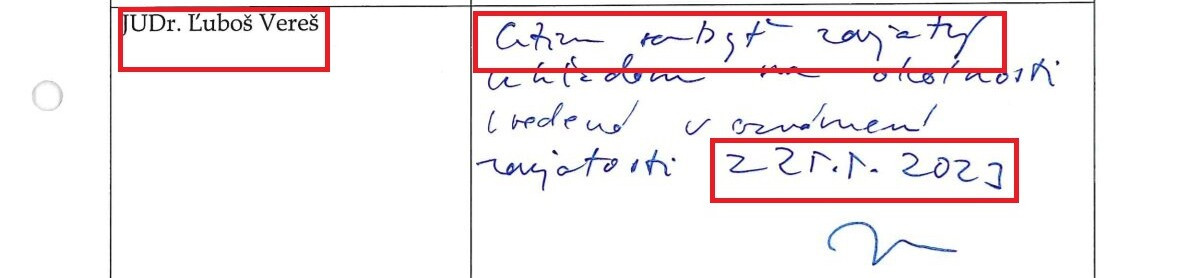 JUDr. Ľuboš Vereš
Cítim sa byť zaujatý
vzhľadom na okolnosti
uvedené v oznámení
zaujatosti z 25.5. 2023